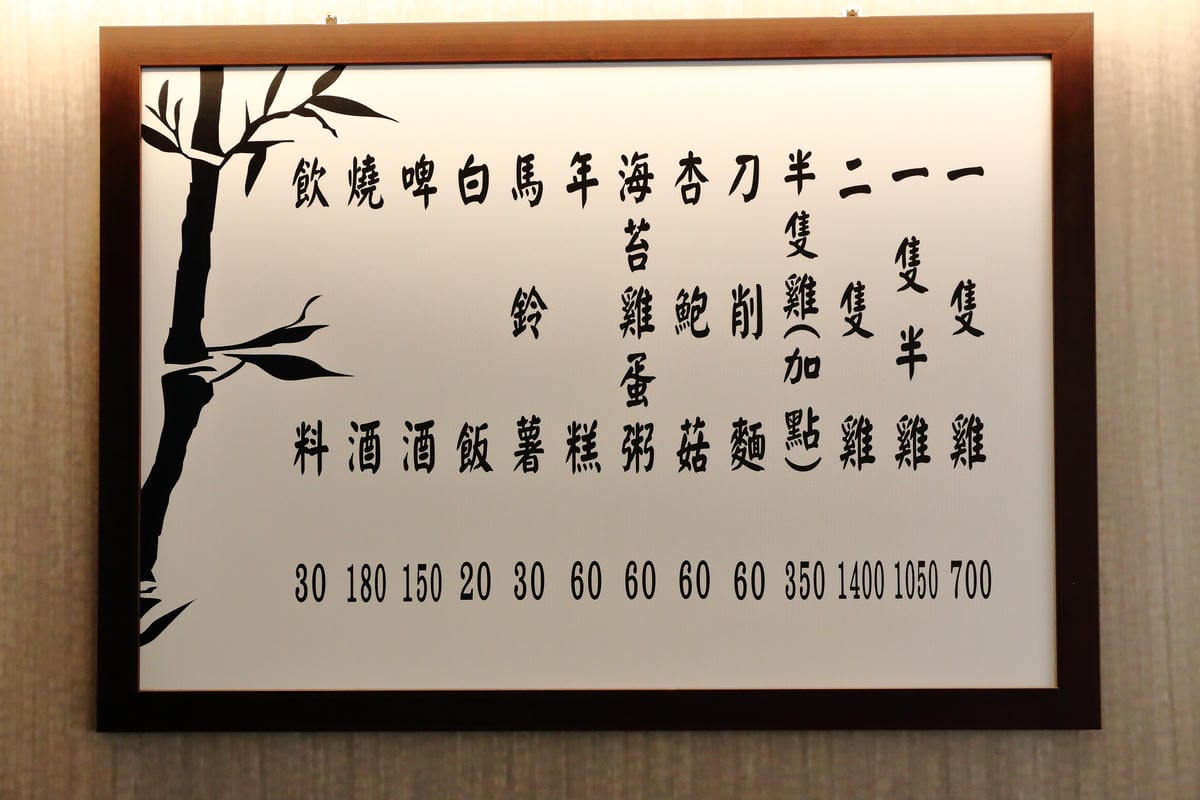 一隻雞 700
一隻半雞 1050
二隻雞 1400
半隻雞(加點) 350
刀削麵 60
杏鮑菇 60
海苔雞蛋粥 60
年糕 60
馬鈴薯 30
白飯 20
啤酒 150
燒酒 180
飲料 30